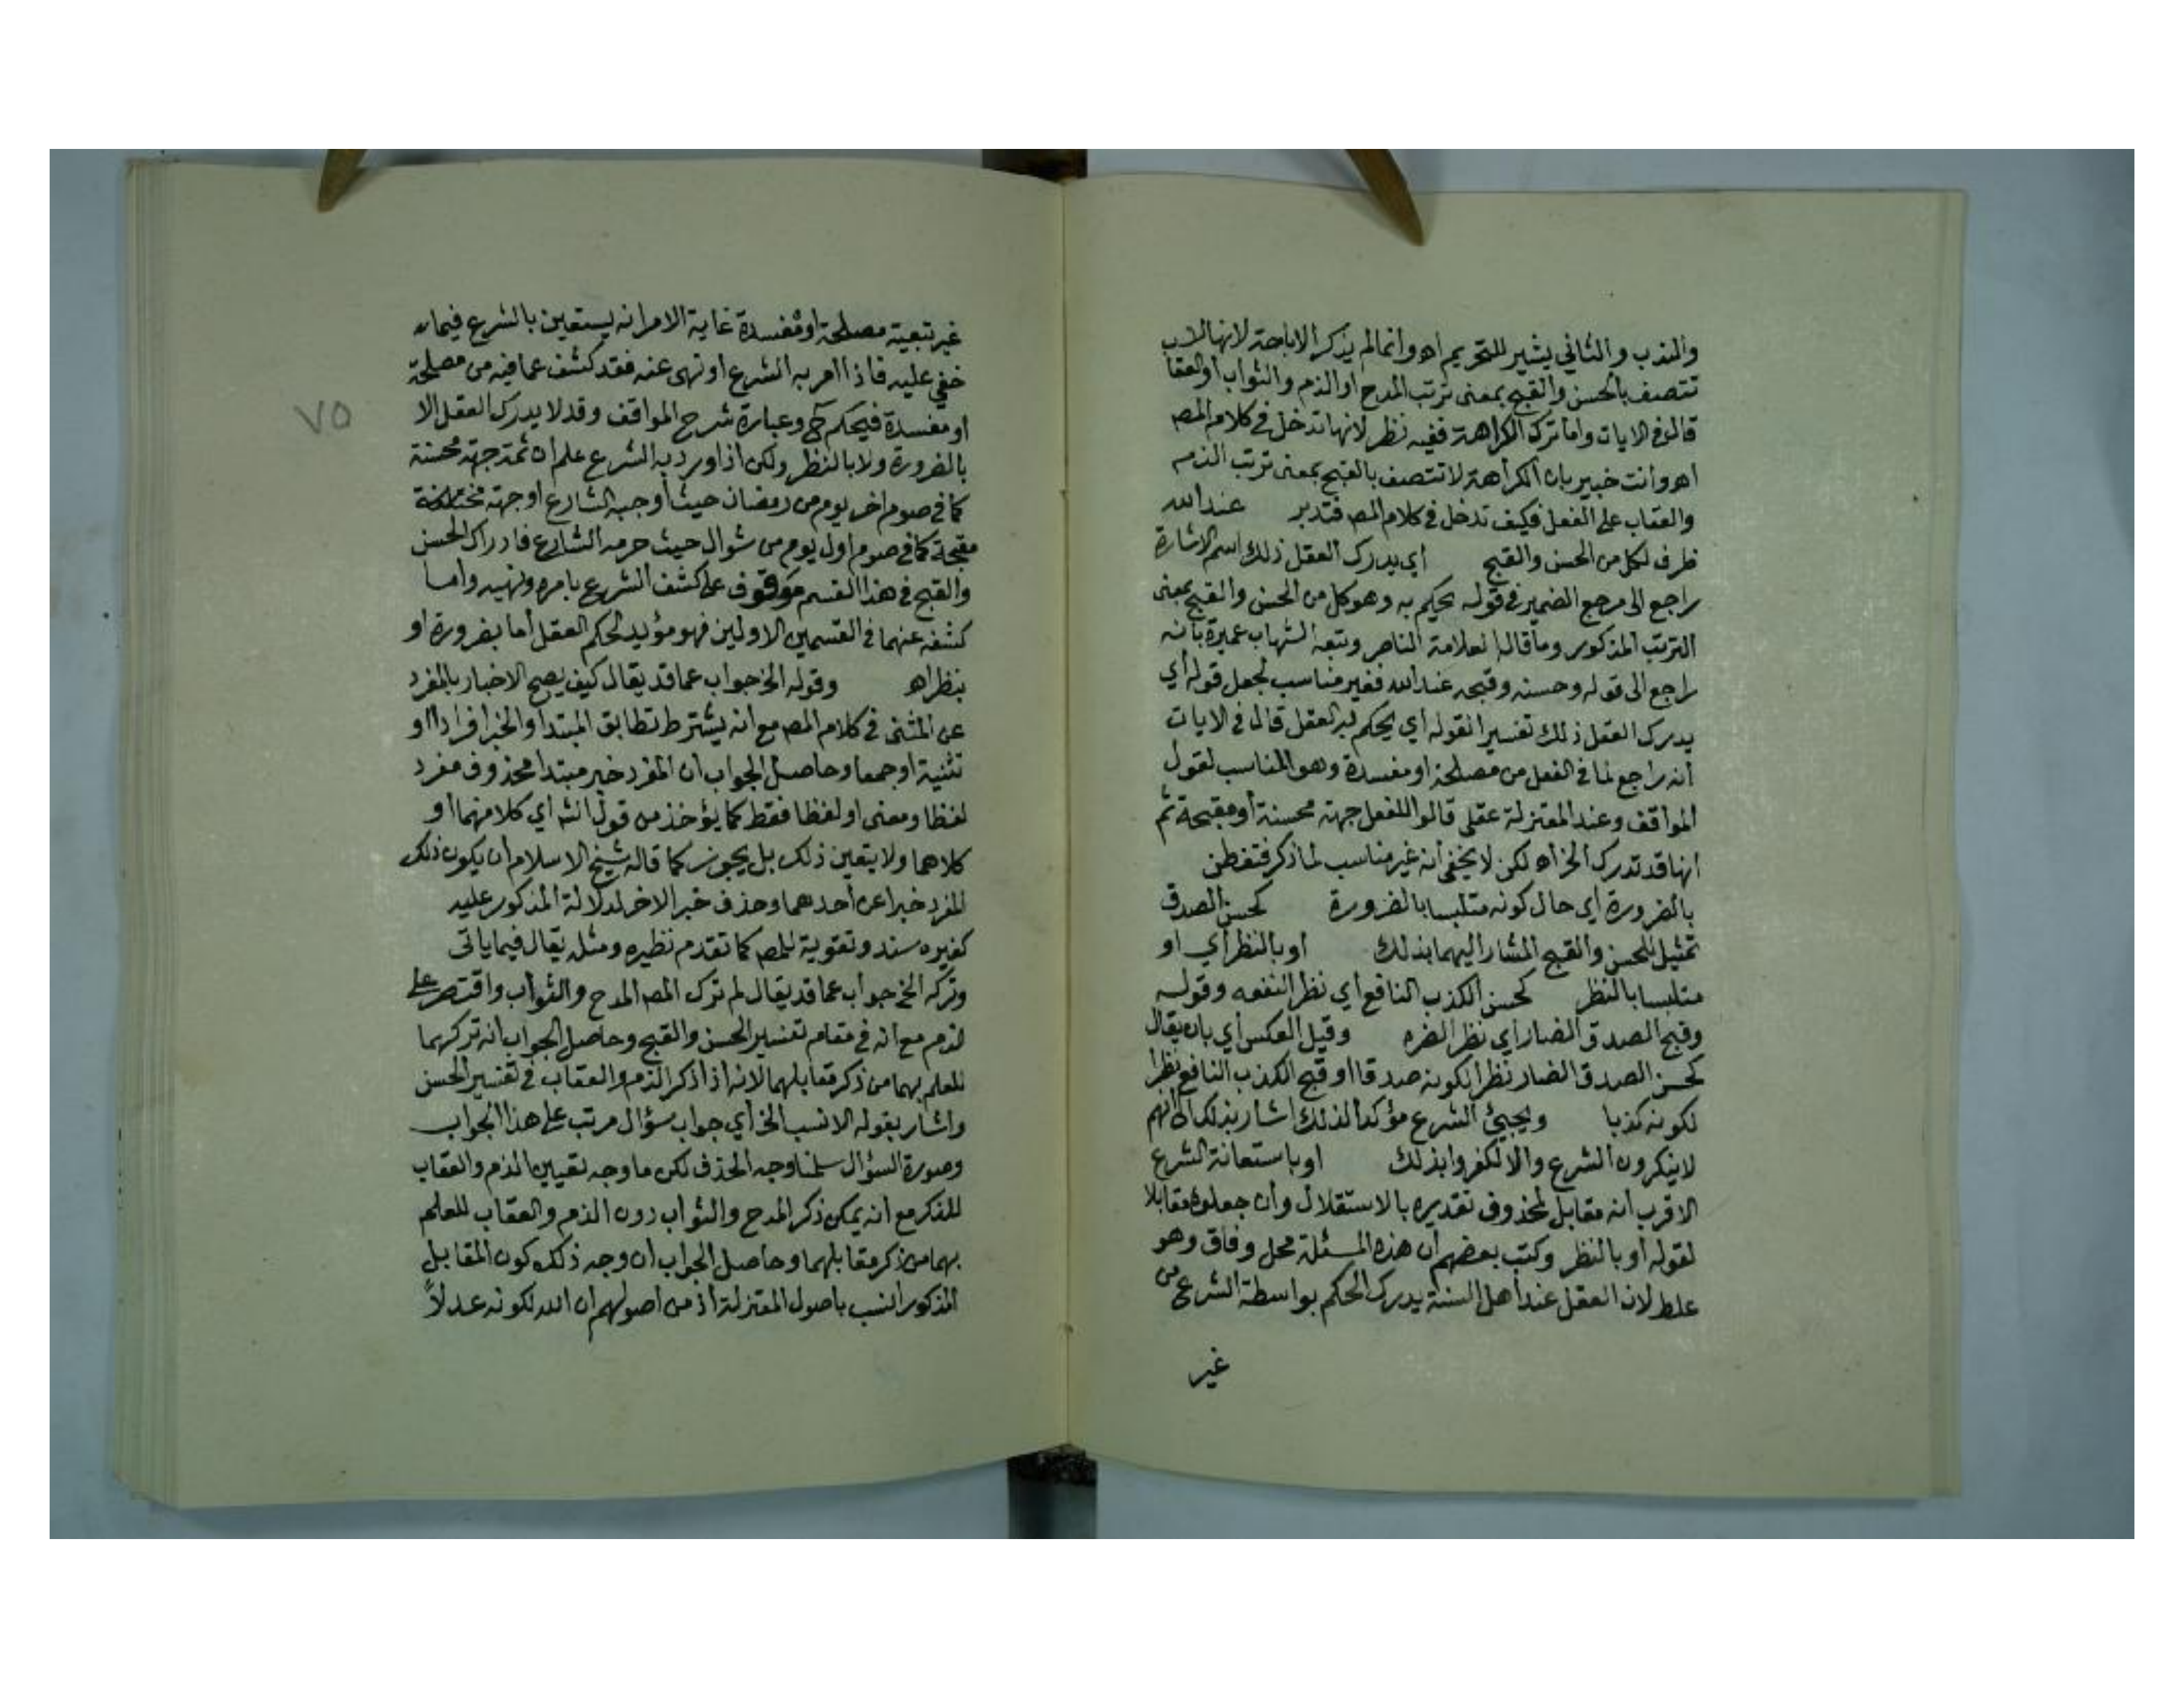 والندب والثاني يشير للتحريم اه وانما لم يذكر الاباحة لانها لا
تتصف بالحسن والقبح بمعنى ترتب المدح او الذم والثواب أو العقا
قال في الايات واما ترك الكراهة ففيه نظر لانها تدخل في كلام المصـ
اه وانت خبير بان الكراهة لا تتصف بالقبح بمعنى ترتب الذم
والعقاب على الفعل فكيف تدخل في كلام المصـ فتدبر عند الله
ظرف لكل من الحسن والقبح أي يدرك العقل ذلك اسم الاشارة
راجع الى مرجع الضمير في قوله يحكم به وهو كل من الحسن والقبح بمعنى
الترتب المذكور وما قاله العلامة الناصر وتبعه الشهاب عميرة بانه
راجع الى قوله وحسنه وقبحه عند الله فغير مناسب لجعل قوله أي
يدرك العقل ذلك تفسيرا لقوله أي يحكم به العقل قال في الايات
أنه راجع لما في الفعل من مصلحة او مفسدة وهو المناسب لقول
المواقف وعند المعتزلة عقلي قالوا للفعل جهة محسنة أو مقبحة ثم
انها قد تدرك الخ اه لكن لا يخفى أنه غير مناسب لما ذكر فتفطن
بالضرورة اي حال كونه متلبسا بالضرورة كحسن الصدق
تمثيل للحسن والقبح المشار اليهما بذلك او بالنظر أي او
متلبسا بالنظر كحسن الكذب النافع اي نظر النفعه وقوله
وقبح الصدق الضار اي نظر الضره وقيل العكس أي بان يقال
كحسن الصدق الضار نظرا لكونه صدقا او قبح الكذب النافع نظرا
لكونه كذبا ويجيئ الشرع مؤكدا لذلك اشار بذلك الى انهم
لا ينكرون الشرع والا لكفروا بذلك او باستعانة الشرع
الاقرب انه مقابل لمحذوف تقديره بالاستقلال وان جعلوه مقابلا
لقوله أو بالنظر وكتب بعضهم ان هذه المسئلة محل وفاق وهو
غلط لان العقل عند أهل السنة يدرك الحكم بواسطة الشرع من
غير
غير تبعية مصلحة او مفسدة غاية الامر انه يستعين بالشرع فيما
خفي عليه فاذا امر به الشرع او نهى عنه فقد كشف عما فيه من مصلحة
او مفسدة فيحكم ح وعبارة شرح المواقف وقد لا يدرك العقل الا
بالضرورة ولا بالنظر ولكن اذا ورد به الشرع علم ان ثمة جهة محسنة
كما في صوم اخر يوم من رمضان حيث أوجبه الشارع او جهة
مقبحة كما في صوم اول يوم من شوال حيث حرمه الشارع فادراك الحسن
والقبح في هذا القسم موقوف على كشف الشرع بامره ونهيه واما
كشفه عنهما في القسمين الاولين فهو مؤيد لحكم العقل أما بضرورة او
بنظر اه وقوله الخ جواب عما قد يقال كيف يصح الاخبار بالمفرد
عن المثنى في كلام المصـ مع انه يشترط تطابق المبتدا والخبر افرادا او
تثنية او جمعا وحاصل الجواب ان المفرد خبر مبتدا محذوف مفرد
لفظا ومعنى او لفظا فقط كما يؤخذ من قول الشـ اي كلا منهما أو
كلاهما ولا يتعين ذلك بل يجوز كما قاله شيخ الاسلام ان يكون ذلك
المفرد خبرا عن أحدهما وحذف خبر الاخر لدلالة المذكور عليه
كغيره سند وتقوية للمصـ كما تقدم نظيره ومثله يقال فيما ياتي
وتركه الخ جواب عما قد يقال لم ترك المصـ المدح والثواب واقتصر على
لذم مع انه في مقام تفسير الحسن والقبح وحاصل الجواب انه تركهما
للعلم بهما من ذكر مقابلهما لانه اذا ذكر الذم والعقاب في تفسير الحسن
واشار بقوله الانسب الخ أي جواب سؤال مرتب على هذا الجواب
وصورة السؤال سلمنا وجه الحذف لكن ما وجه تعيين الذم والعقاب
للذكر مع انه يمكن ذكر المدح والثواب دون الذم والعقاب للعلم
بهما من ذكر مقابلهما وحاصل الجواب ان وجه ذلك كون المقابل
المذكور انسب باصول المعتزلة اذ من اصولهم ان الله لكونه عدلاً
٧٥